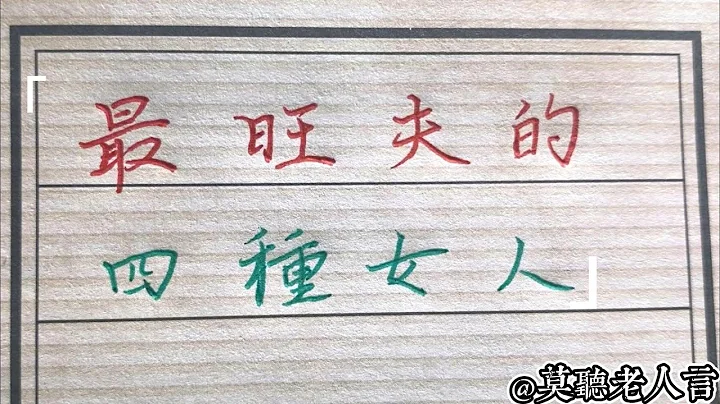 「最旺夫的
四種女人」
@莫聽老人言